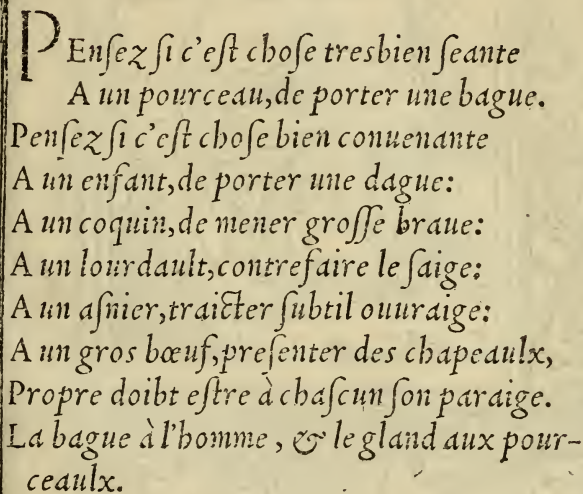 PEnſez ſi c'eſt choſe tresbien ſeante
A un pourceau, de porter une bague.
Penſez ſi c'eſt choſe bien conuenante
A un enfant, de porter une dague:
A un coquin, de mener groſſe braue:
A un lourdault, contrefaire le ſaige:
A un aſnier, traicter ſubtil ouuraige:
A un gros bœuf, preſenter des chapeaulx,
Propre doibt eſtre à chaſcun ſon paraige.
La bague à l'homme, & le gland aux pour-
ceaulx.